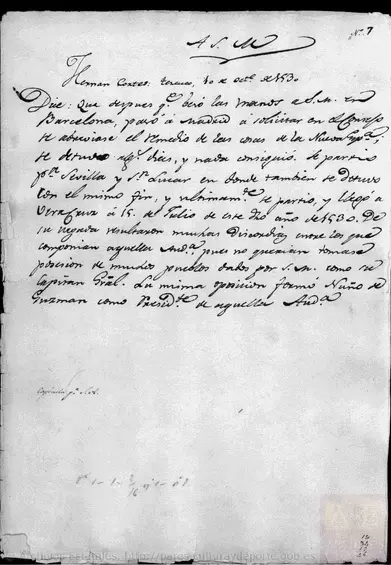 Nº 7
A S. M.
Hernan Cortés. Tezcuco, 10 de octe de 1530.
Dice: que despues qe besó las manos a S. M. en
Barcelona, pasó a Madrid a solicitar en el Consejo
se abreviase el remedio de las cosas de la Nueva Espa,
se detuvo algs dias, y nada consiguió. Se partió
pa Sevilla y Sn Lucar en donde tambien se detuvo
con el mismo fin, y ultimamte se partio, y llegó a
Veracruz a 15 de Julio de este dho año de 1530. De
su llegada resultaron muchas discordias entre los que
componian aquella Auda, pues no querian tomase
posesion de muchos pueblos dados por S. M. como su
Capitan Gral. La misma oposicion formó Nuño de
Guzman como Presidte de aquella Auda